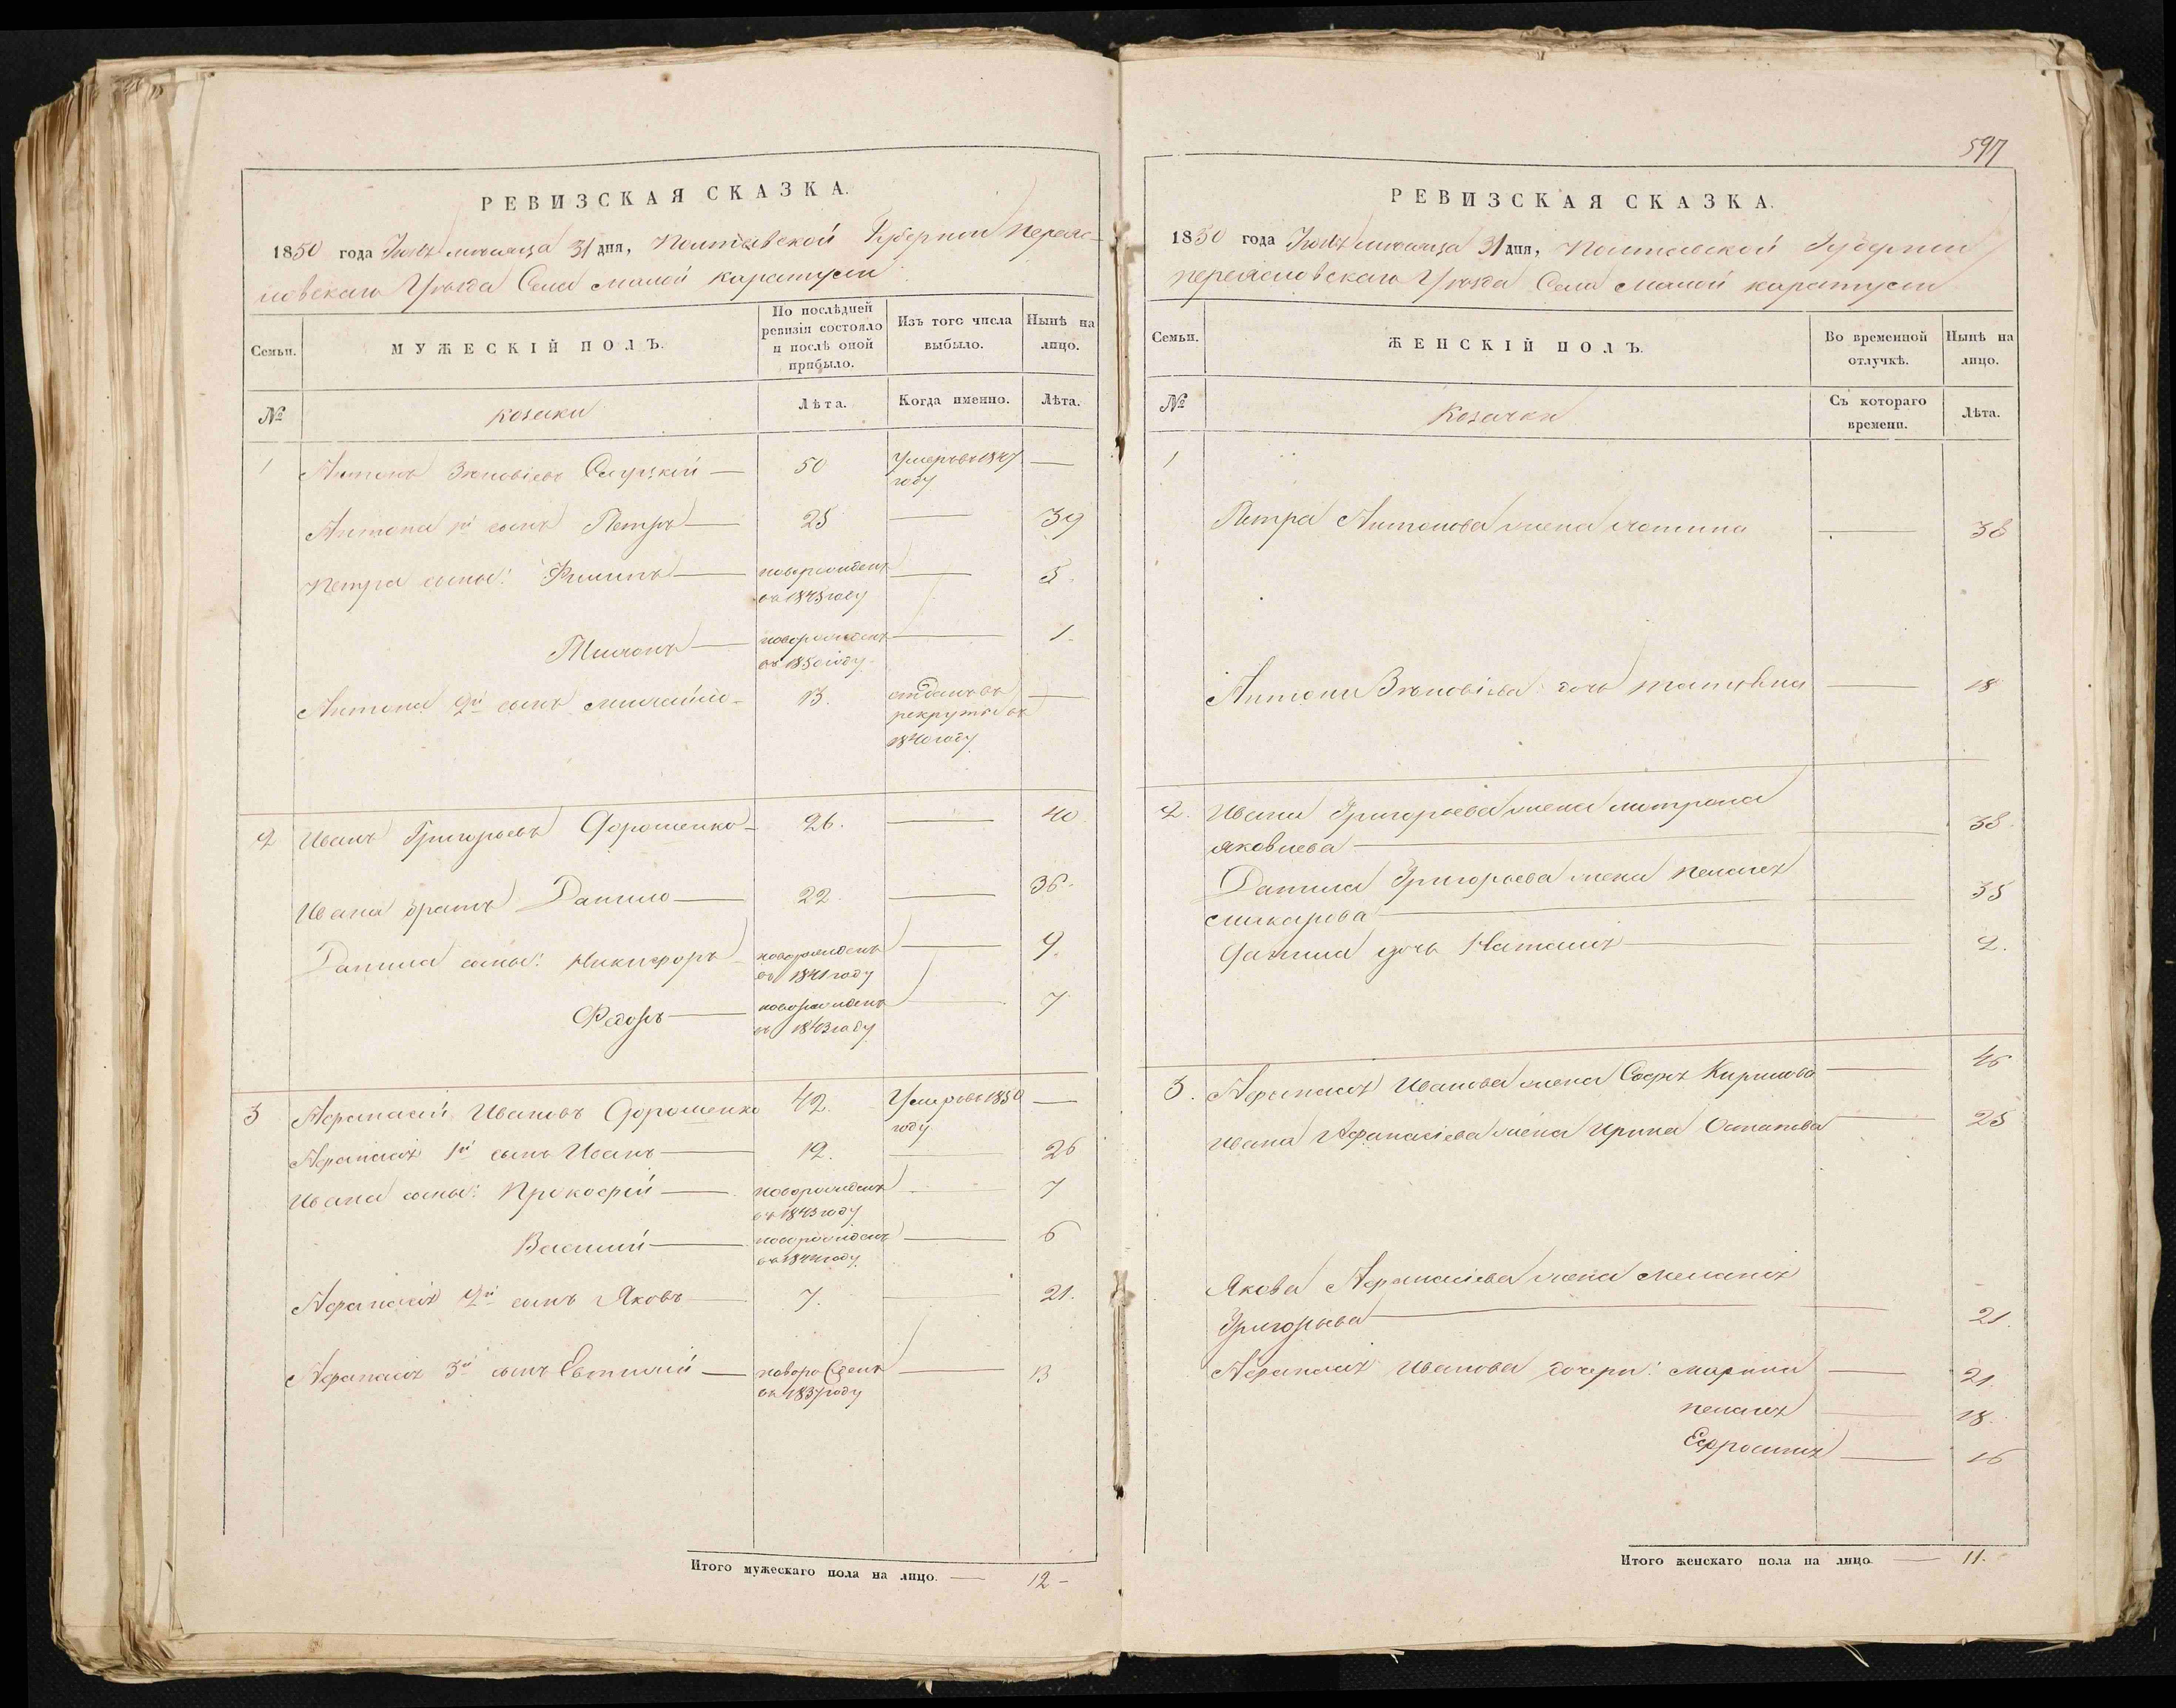 РЕВИЗСКАЯ СКАЗКА.
1850 года Іюля мѣсяца 31 дня, Полтавской Губерніи Переяс-
ловскаго Уѣзда Села малой каратули
Семьи.
МУЖЕСКІЙ ПОЛЪ.
По послѣдней
ревизіи состояло
и послѣ оной
прибыло.
Изъ того числа
выбыло.
Нынѣ на
лицо.
№
козаки
Лѣта.
Когда именно.
Лѣта.
1 Антонъ Зѣновіевъ — 50 Умеръ въ 1847 —
году
Антона 1й сынъ Петръ — 25 — 39
Петра сыны: Филипъ — новорожденъ — 5.
въ 1845 году
новорожденъ — 1.
въ 1850 году.
Антона 2й сынъ Михайло - 13. отданъ въ —
рекруты въ
1840 году
2 Иванъ Григорьевъ Дорошенко - 26. — 40.
Ивана братъ Данило — 22 — 36.
Данила сыны: Никифоръ новорожденъ — 9.
въ 1841 году
Федоръ — новорожденъ — 7
въ 1843 году
3 Афанасій Ивановъ Дорошенко 42. Умеръ въ 1850 —
году
Афанасія 1й сынъ Иванъ — 12. — 26
Ивана сыны: Прокофій — новорожденъ — 7
въ 1843 году
Василій — новорожденъ — 6
въ 1844 году
Афанасія 2й сынъ Яковъ — 7. — 21.
Афанасія 3й сынъ Евтихій — новорожденъ — 13
въ 1837 году
Итого мужескаго пола на лицо. — 12 -
597
РЕВИЗСКАЯ СКАЗКА.
1850 года Іюля мѣсяца 31 дня, Полтавской Губерніи
переясловскаго Уѣзда Села Малой каратули
Семьи.
ЖЕНСКІЙ ПОЛЪ.
Во временной
отлучкѣ.
Нынѣ на
лицо.
№
Козачки
Съ котораго
времени.
Лѣта.
1
Петра Антонова жена — 38
Антона Зѣновіева дочь — 18
2. Ивана Григорьева жена Митрона
яковлева — 38.
Данила Григорьева жена Пелагея
— 35
Данила дочь Наталія — 2.
3. Афанасія Иванова жена Софія Кирилова — 46
Ивана Афанасіева жена Ирина Остапова — 25
Якова Афанасіева жена Меланія
Григорьева — 21.
Афанасія Иванова дочери: Марина — 21.
пелагея — 18.
Ефросинія — 16
Итого женскаго пола на лицо. — 11.